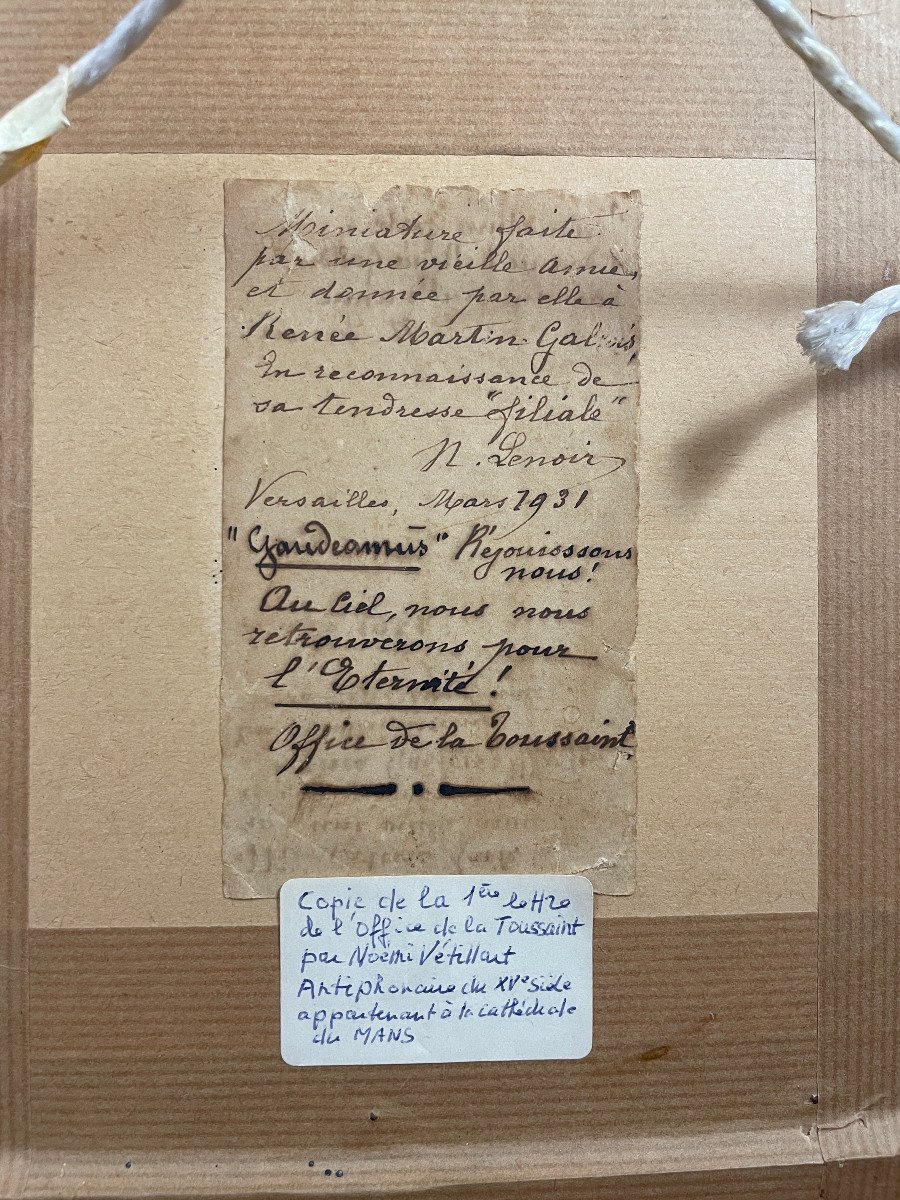 Miniature faite
par une vieille amie,
et donnée par elle à
Renée Martin
En reconnaissance de
sa tendresse "filiale"
N. Lenoir
Versailles, Mars 1931
"Gaudeamus" Réjouisssons
nous!
Au Ciel, nous nous
retrouverons pour
l'Eternité!
Office de la Toussaint
Copie de la 1ère lettre
de l'Office de la Toussaint
par Noëmi Vétillart
Antiphonaire du XVe siècle
appartenant à la cathédrale
du MANS